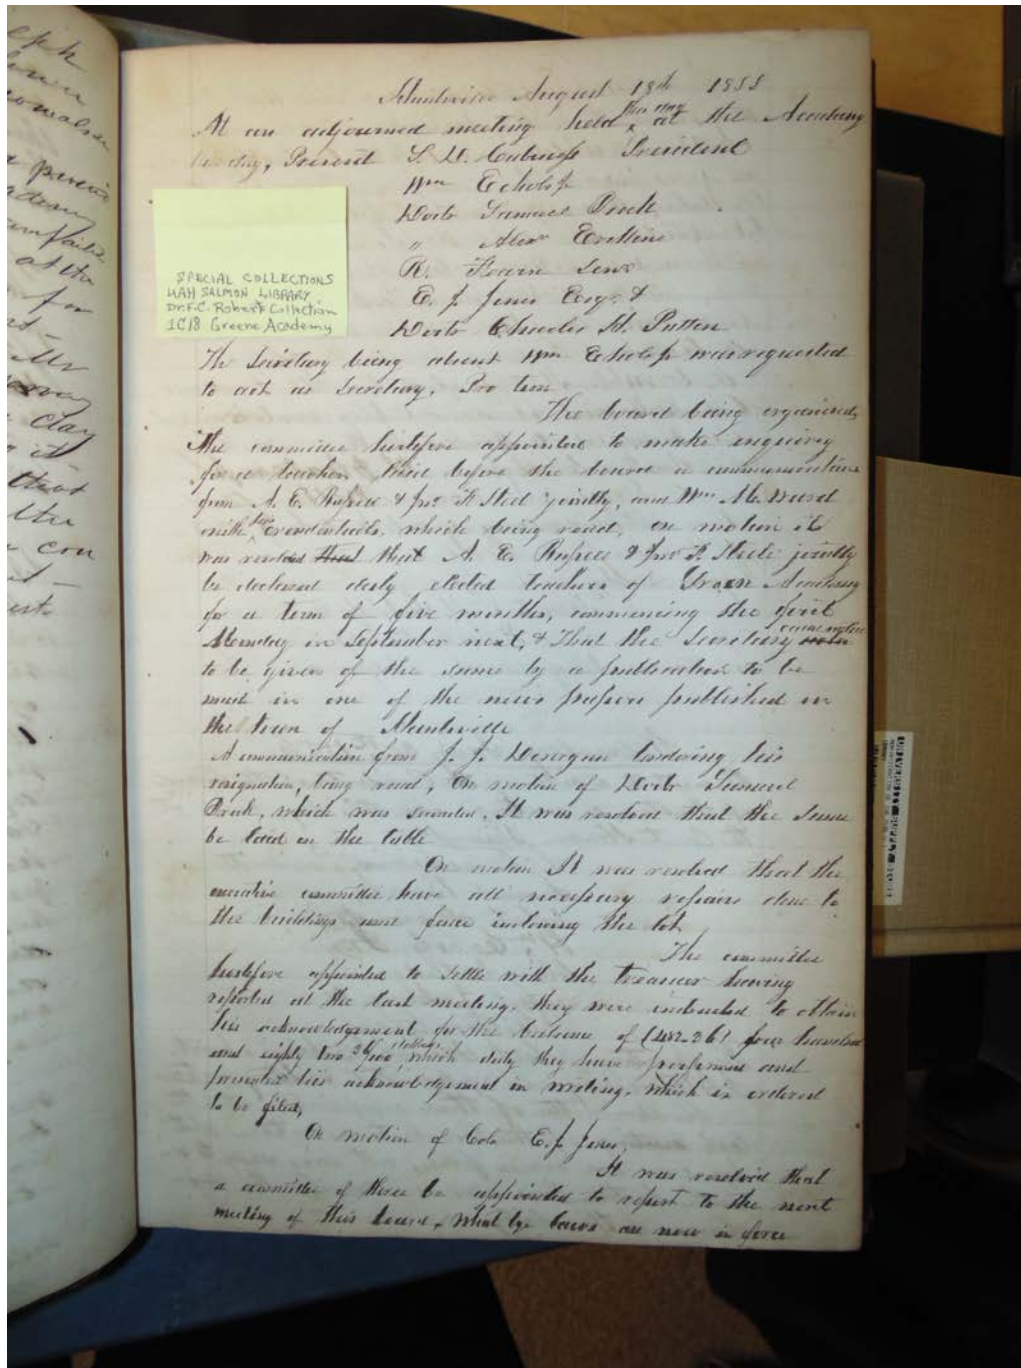 Huntsville August 18th 1855
At an adjourned meeting held this day at the Academy
Present S. D. Cabaniss President
Wm Echols Jr
Doctr Samuel Breck
" Alexr Erskine
R. Fearn
E. J. Jones Esqr. &
Doctr Charles H. Patton
The Secretary being absent Wm Echols Jr was requested
to act as Secretary, Pro tem
The board being organized,
The committee heretofore appointed to make enquiry
for a teacher, laid before the board a communication
from A. E. Russell & Jno. F. Steel jointly, and Wm M. Ward
with their credentials, which being read, on motion it
was resolved that that A. E. Russell & Jno F. Steele jointly
be declared duly elected teachers of Green Academy
for a term of five months, commencing the first
Monday in September next, & That the Secretary cause notice
to be given of the same by a publication to be
made in one of the news papers published in
the Town of Huntsville
A communication from J. J. tendering his
resignation, being read, On motion of Doctr Samuel
Breck, which was seconded, It was resolved that the same
be laid on the table
On motion It was resolved that the
executive committee have all necessary repairs done to
the buildings and fence inclosing the lot.
The committee
heretofore appointed to settle with the treasurer having
reported at the last meeting, they were instructed to obtain
his acknowledgement for the balance of (482.36) four hundred
and eighty two 36/100 dollars, which duty they have performed and
presented his acknowledgement in writing, which is ordered
to be filed,
On motion of Colo E. J. Jones,
It was resolved that
a committee of three be appointed to report to the next
meeting of this board, what bye laws are now in force
SPECIAL COLLECTIONS
UAH SALMON LIBRARY
Dr. F.C. Roberts Collection
1C18 Greene Academy